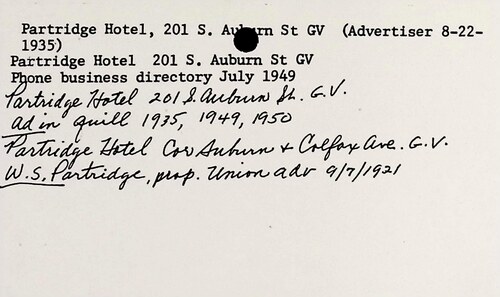 Partridge Hotel, 201 S. Auburn St GV (Advertiser 8-22-
1935)
Partridge Hotel 201 S. Auburn St GV
Phone business directory July 1949
Partridge Hotel 201 S. Auburn St. G.V.
ad in quill 1935, 1949, 1950
Partridge Hotel Cor Auburn + Colfax Ave. G.V.
W.S. Partridge, prop. Union adv 9/7/1921